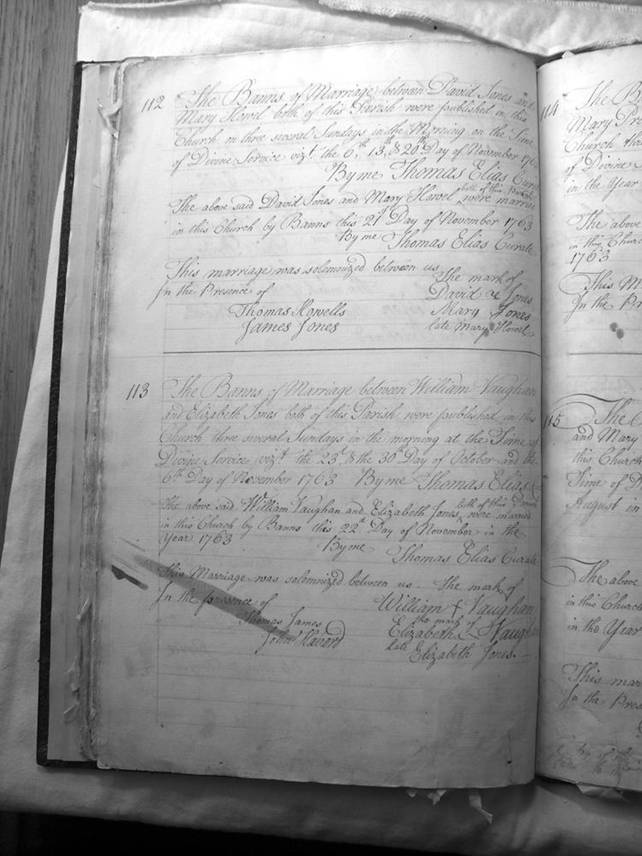 112 The Banns of Marriage between David Jones and
Mary Howel both of this Parish were published in this
Church on three several Sundays in the Morning on the Time
of Divine Service vizt. the 6th, 13th, & 20th Day of November 1763
By me Thomas Elias Curate
The above said David Jones and Mary Howel both of this Parish were married
in this Church by Banns this 21st Day of November 1763
By me Thomas Elias Curate
This marriage was solemnized between us The mark of
In the Presence of David Jones
Thomas Howells Mary Jones
James Jones late Mary Howel
113 The Banns of Marriage between William Vaughan
and Elizabeth Jones both of this Parish were published in this
Church three several Sundays in the morning at the Time of
Divine Service vizt. the 23d, & the 30th Day of October and the
6th Day of November 1763 By me Thomas Elias
The above said William Vaughan and Elizabeth Jones both of this Parish were married
in this Church by Banns this 22d Day of November in the
Year 1763 By me
Thomas Elias Curate
this Marriage was solemnized between us The mark of
In the presence of William Vaughan
Thomas James the mark of
Elizabeth Vaughan
late
Elizabeth Jones
114 The
Mary
Church
of Divine
in the Year
The above
in this Church
1763
This
In the
115 The
and Mary
this Church
Time of
August in
The above
in this Church
in the Year
This
In the